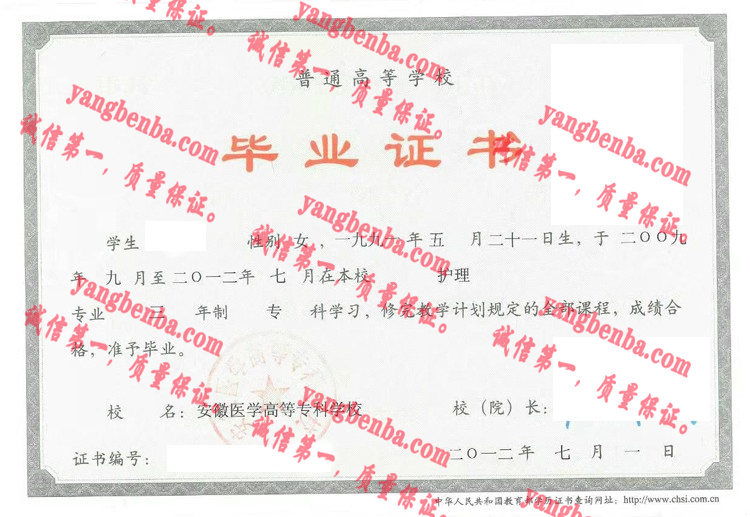 普通高等学校
毕业证书
学生 性别 女 ，一九九一年 五 月二十一日生，于 二〇〇九
年 九 月至二〇一二年 七 月在本校 护理
专业 三 年制 专 科学习，修完教学计划规定的全部课程，成绩合
格，准予毕业。
校 名：安徽医学高等专科学校 校（院）长：
证书编号： 二〇一二年 七 月 一 日
中华人民共和国教育部学历证书查询网址：http://www.chsi.com.cn
yangbenba.com
诚信第一，质量保证。
yangbenba.com
诚信第一，质量保证。
yangbenba.com
诚信第一，质量保证。
yangbenba.com
诚信第一，质量保证。
yangbenba.com
诚信第一，质量保证。
yangbenba.com
诚信第一，质量保证。
yangbenba.com
诚信第一，质量保证。